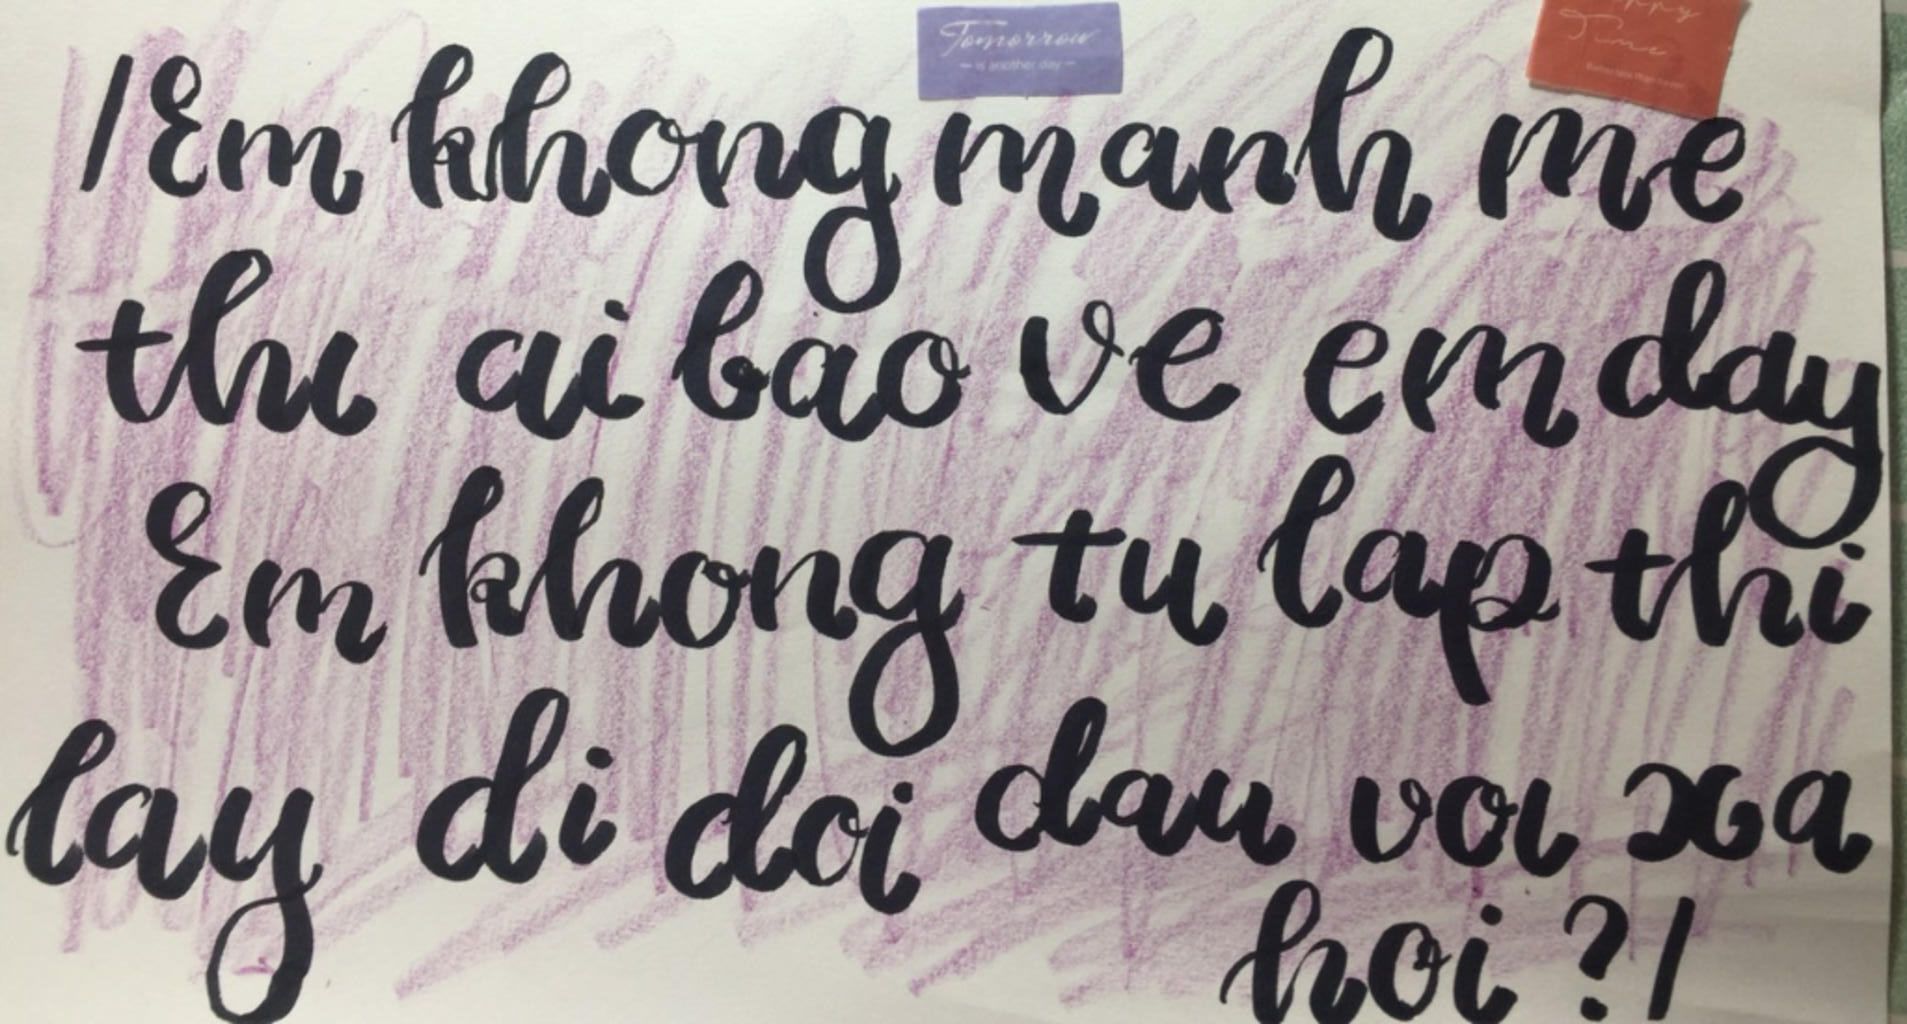 Tomorrow
— is another day —
Time
/Em khong manh me
thi ai bao ve em day
Em khong tu lap thi
lay di doi dau voi xa
hoi ?/